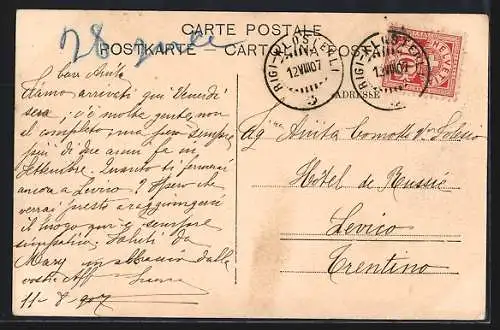 CARTE POSTALE
POSTKARTE — CARTOLINA POSTALE
ADRESSE
28
RIGI-KLÖSTERLI
12.VIII.07
RIGI-KLÖSTERLI
12.VIII.07
HELVETIA
Cara Anita
Siamo arrivati qui Venerdì
sera; c'è molta gente, non
il completo, ma però sempre
più di due anni fa in
Settembre. Quanto ti fermerai
ancora a Levico? Spero che
verrai presto a raggiungerci
il luogo qui è sempre
simpatico. Saluti da
Mary un abbraccio dalla
vostra Aff
11-8-907
Sig.na Anita Comotto
Hôtel de Russie
Levico
Trentino